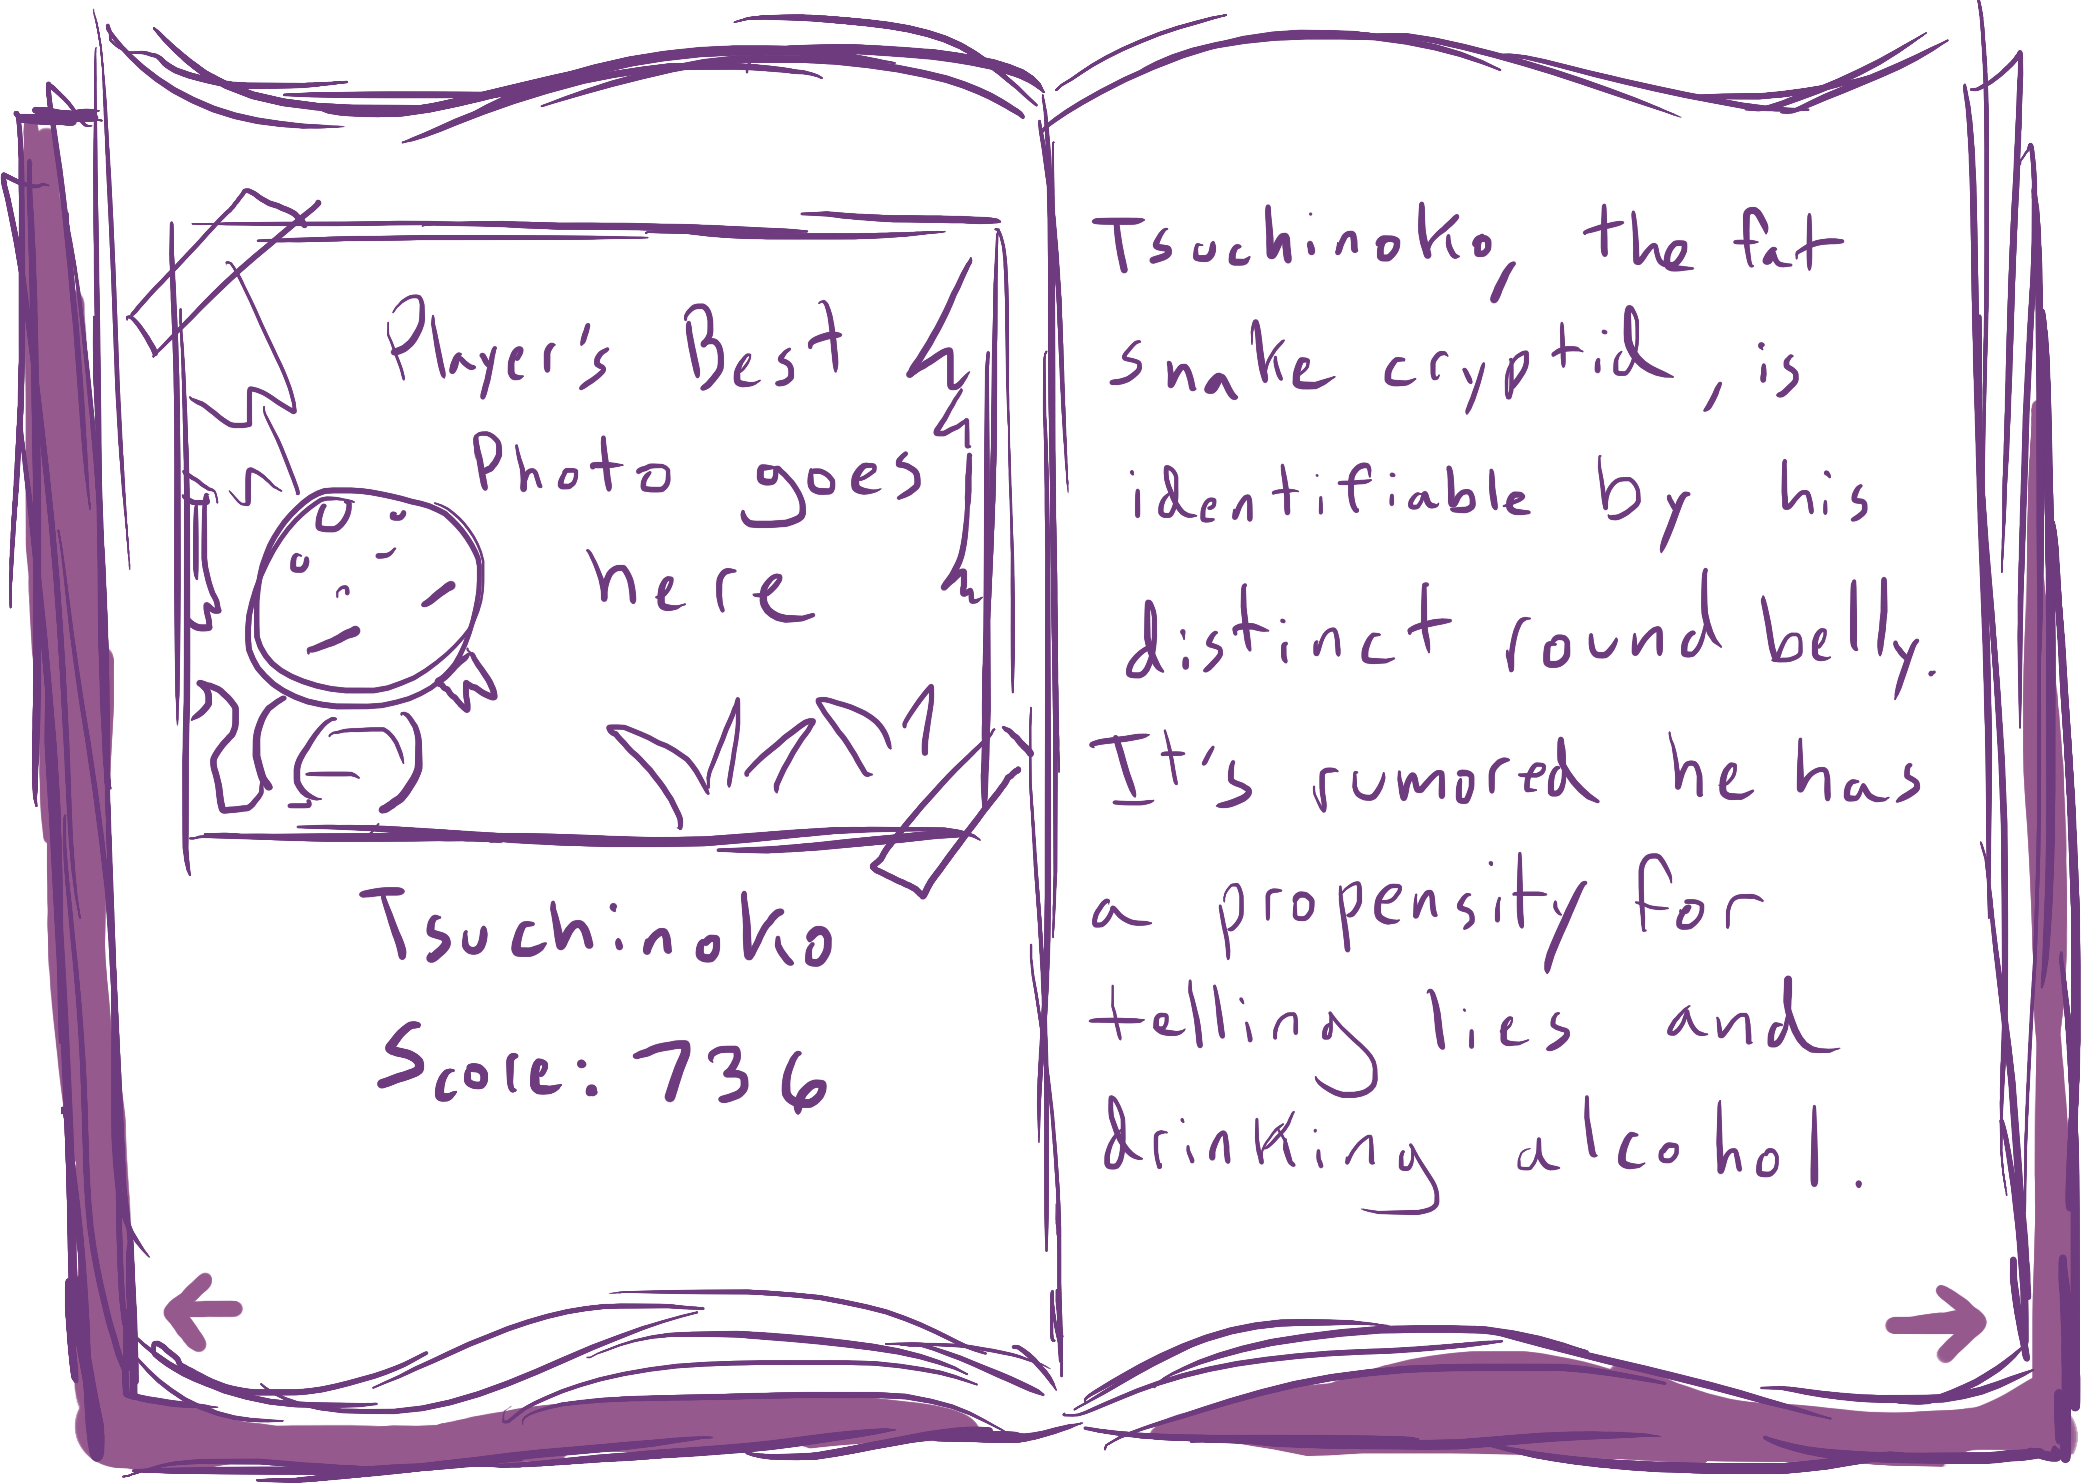 Player's Best
Photo goes
here
Tsuchinoko
Score: 736
Tsuchinoko, the fat
snake cryptid, is
identifiable by his
distinct round belly.
It's rumored he has
a propensity for
telling lies and
drinking alcohol.